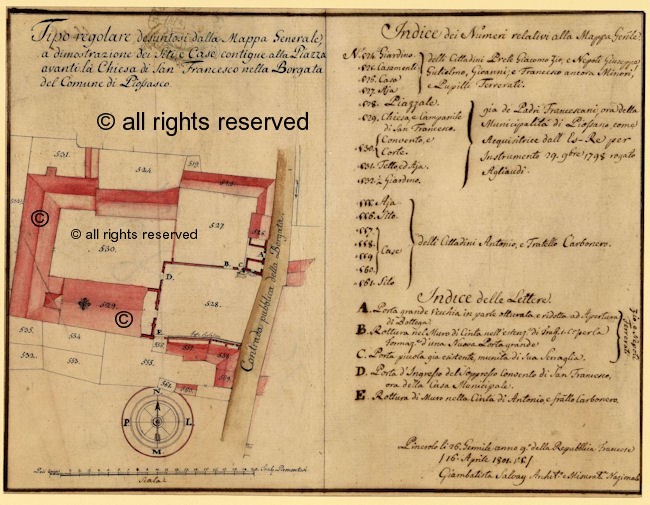 Tipo regolare desuntosi dalla Mappa Generale,
a dimostrazione dei Siti, e Case, contigue alla Piazza
avanti la Chiesa di San Francesco nella Borgata
del Comune di Piossasco.
© all rights reserved
531.
524.
519.
525.
527.
526.
©
© all rights reserved
530.
A.
B.
C.
D.
529.
528.
E.
©
Contrada pubblica della Borgata.
535.
534.
533.
532.
556.
557.
558.
559.
560.
561.
N
P.
L.
M.
Scala
Indice dei Numeri relativi alla Mappa Gen.le
N.° 524. Giardino.
525. Casamenti
526. Casa
527. Aja
delli Cittadini Prete Giacomo Zio, e Nepoti Giuseppe
Guielmo, Giovanni, e Francesco ancora Minori,
e Pupilli Ferrerati.
528. Piazzale.
529. Chiesa, e Campanile
di San Francesco.
530. Convento, e
Corte.
531. Tetto, ed Aja.
532. Giardino.
gia de Padri Francescani, ora della
Municipalità di Piossasco, come
Acquisitrice dall'Ex-Re per
Instrumento 29. 9bre 1798 rogato
Agliaudi.
555. Aja
556. Sito.
557.
558.
559.
560.
Case
561. Sito
delli Cittadini Antonio, e Fratello Carbonero.
Indice delle Lettere.
A. Porta grande Vecchia in parte otturata, e ridotta ad Apertura
di Bottega
B. Rottura nel Muro di Cinta per la
formaz.e d'una Nuova Porta grande
C. Porta picola gia esistente, munita di Sua Serraglia.
D. Porta d'Ingresso del Soppresso Convento di San Francesco,
ora della Casa Municipale.
E. Rottura di Muro nella Cinta di Antonio, e frãtto Carbonero.
Pinerolo li 26. Germile anno 9.° della Repubblica Francese
/16. Aprile 1801. v.s./
Giambatista Salvay Archit.o e Misurat.e Nazionale